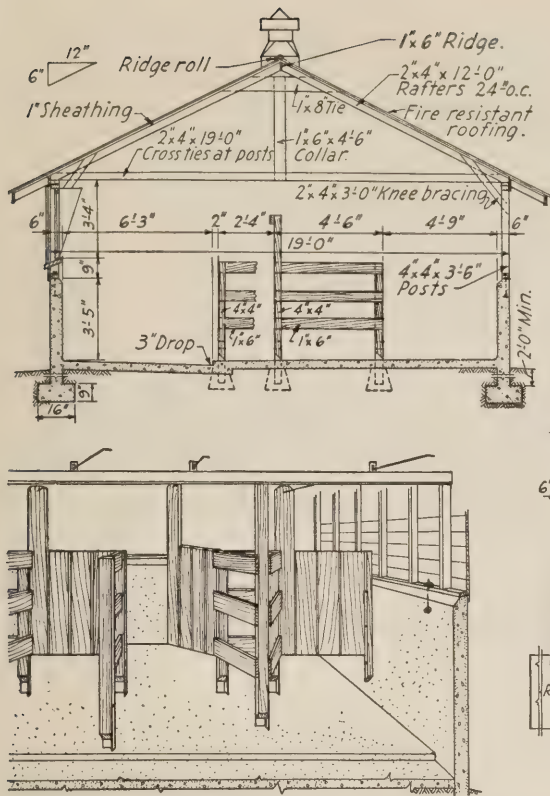 12"
6"
Ridge roll
1"x 6" Ridge.
2"x 4"x 12'-0"
Rafters 24" o.c.
1" Sheathing
1"x 8" Tie
Fire resistant
roofing.
2"x 4"x 19'-0"
Cross ties at posts
1"x 6"x 4'-6"
Collar.
2"x 4"x 3'-0" Knee bracing
6"
3'-4"
6'-3"
2"
2'-4"
4'-6"
4'-9"
6"
19'-0"
9"
4"x 4"x 3'-6"
Posts
3'-5"
4"x 4"
4"x 4"
1"x 6"
1"x 6"
3" Drop
2'-0" Min.
9"
16"
6"
R